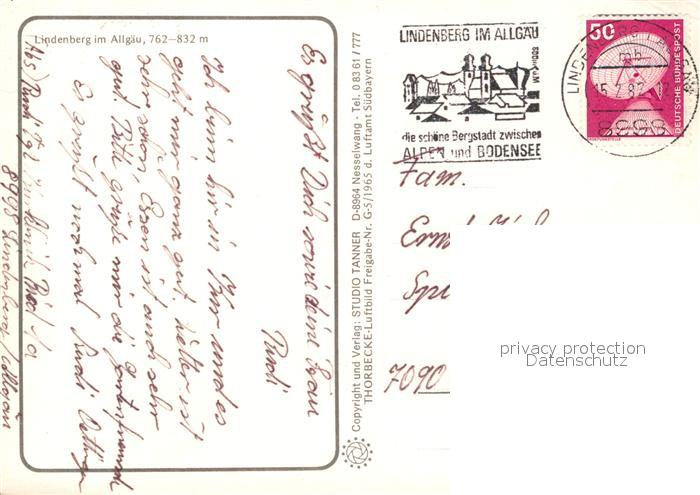 Lindenberg im Allgäu, 762–832 m
Es grüßt Dich sowie deine Frau
Rudi
Ich bin hier in Kur und es
geht mir ganz gut. Wetter ist
sehr schön. Essen ist auch sehr
gut. Bitte grüße mir die
Es grüßt nochmal Rudi
Abs:) Rudi
8998 Lindenberg / Allgäu
Copyright und Verlag: STUDIO TANNER D-8964 Nesselwang - Tel. 0 83 61 / 777
THORBECKE-Luftbild Freigabe-Nr. G-5/1965 d. Luftamt Südbayern
LINDENBERG IM ALLGÄU
die schöne Bergstadt zwischen
ALPEN und BODENSEE
LINDENBERG
8998
50
DEUTSCHE BUNDESPOST
Fam.
7090
privacy protection
Datenschutz